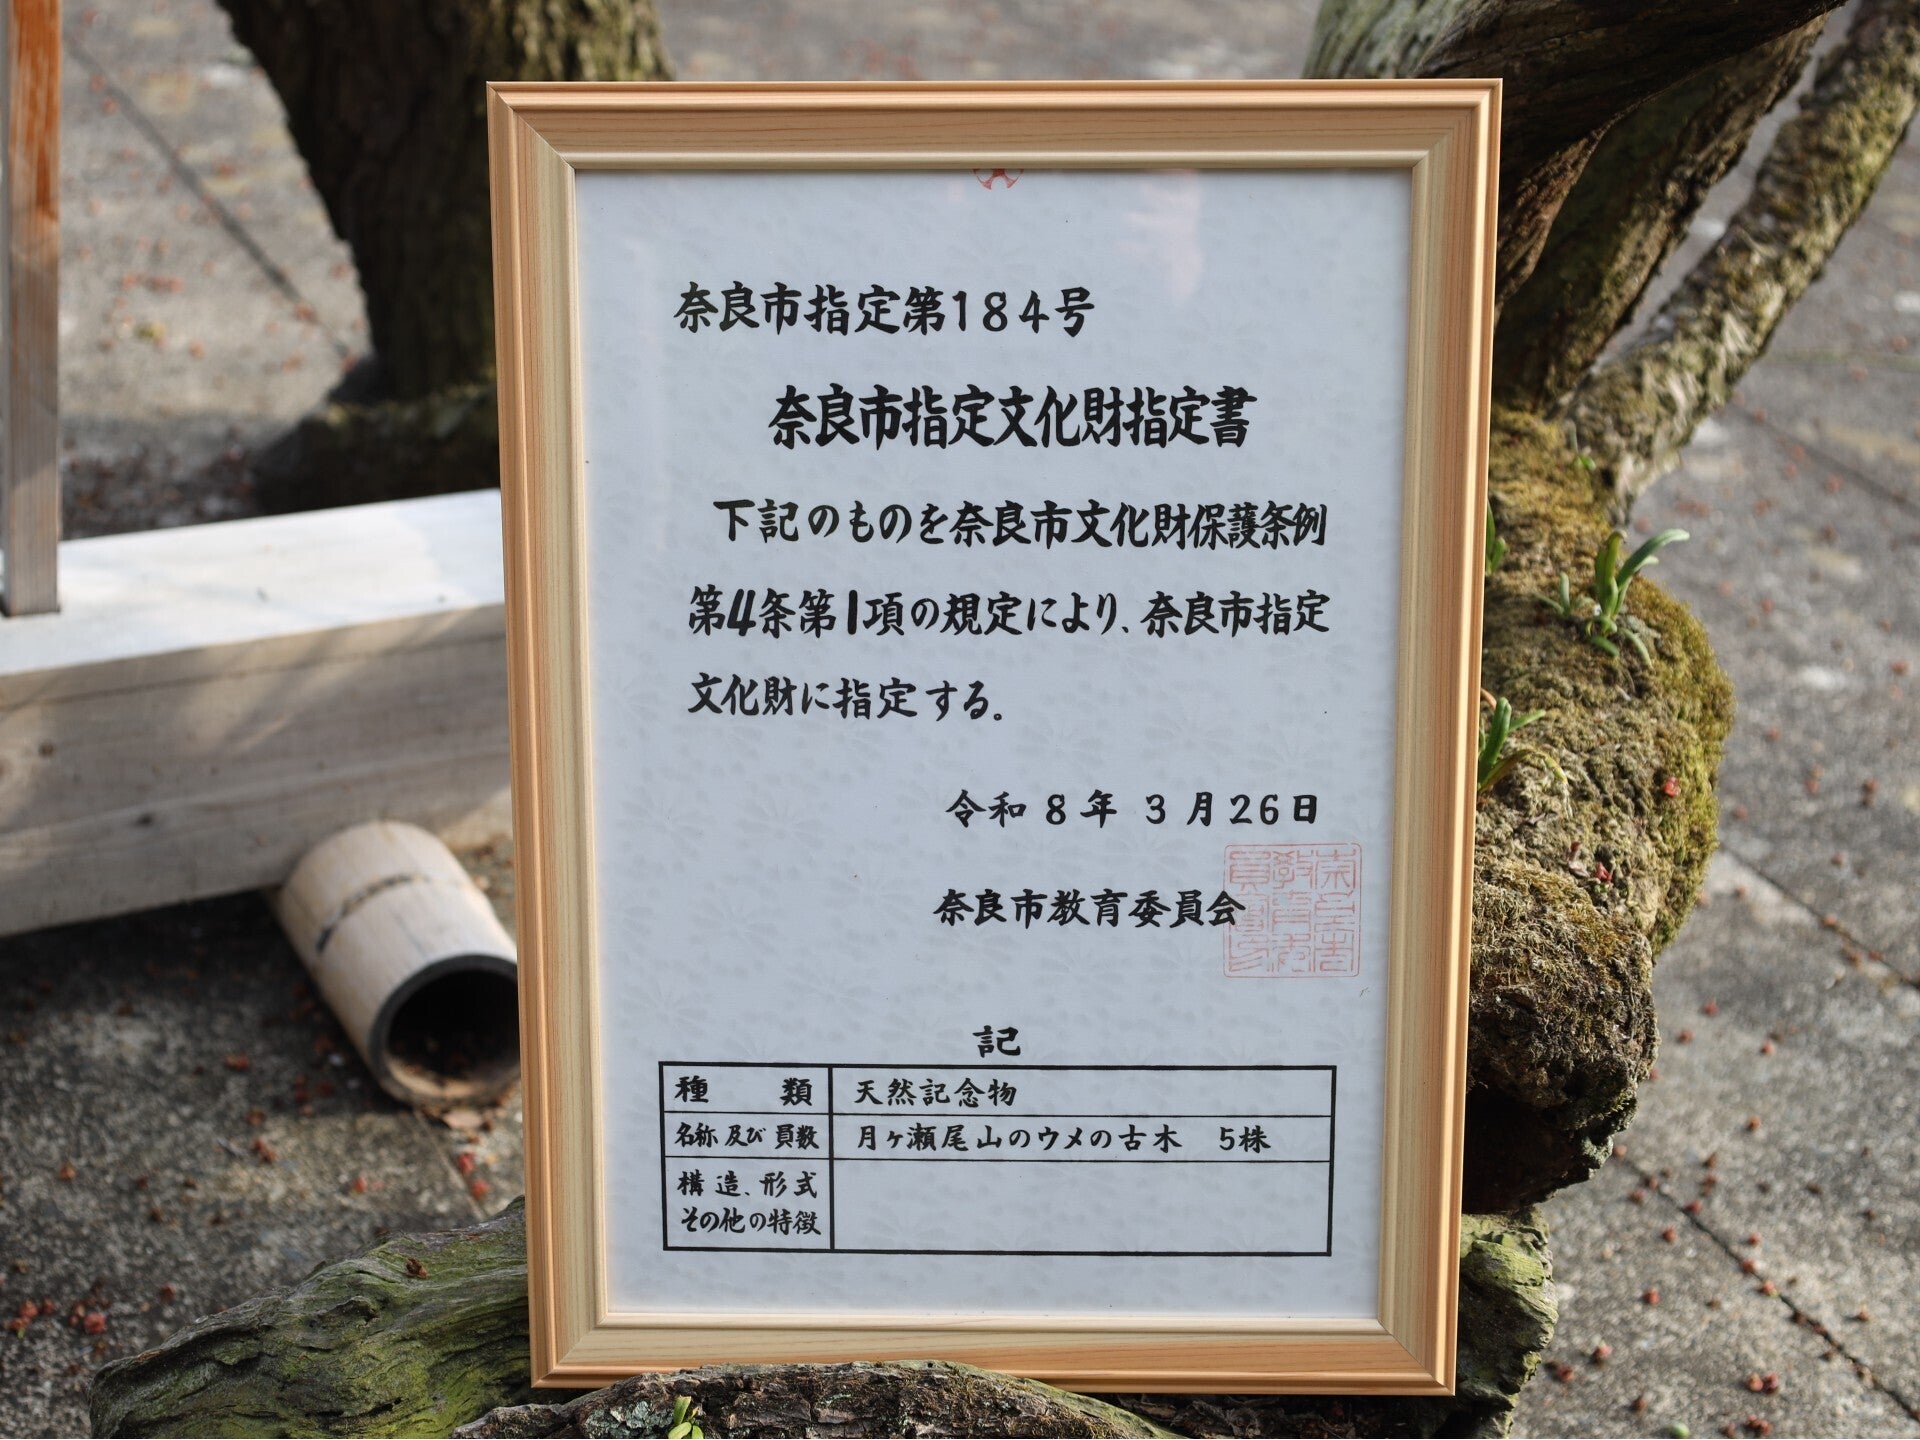 奈良市指定第184号
奈良市指定文化財指定書
下記のものを奈良市文化財保護条例
第4条第1項の規定により、奈良市指定
文化財に指定する。
令和8年3月26日
奈良市教育委員会
記
種類 天然記念物
名称及び員数 月ヶ瀬尾山のウメの古木 5株
構造、形式
その他の特徴